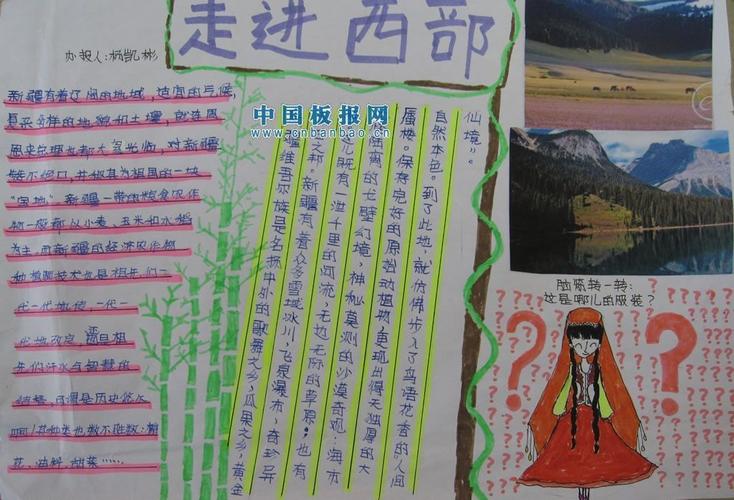 走进西部
办报人:杨凯彬
新疆有着辽阔的地域,适宜的气候,
复杂多样的地貌和土壤,就连周
恩来总理也都大驾光临,对新疆
赞不绝口,并称其为祖国的一块
"宝地"。新疆一带的粮食农作
物一般都以小麦、玉米和水稻
为主,而新疆的经济农作物
种植技术也是祖先们一
代一代地传,一代一
代地改良,
先们汗水与智慧的
结晶,可谓是历史悠久
啊!其种类也数不胜数:棉
花、油料、甜菜……
中国板报网
www.cnbanbao.cn
疆维吾尔族是名扬中外的歌舞之乡,瓜果之乡,黄金
之邦。新疆有着众多雪域冰川,飞泉瀑布,奇珍异
儿既有一泄千里的河流,无边无际的草原;也有
陆离的戈壁幻境,神秘莫测的沙漠奇观:海市
蜃楼。保存完好的原始动植物,更现出得天独厚的大
自然本色。到了此地,就仿佛步入了鸟语花香的"人间
仙境"。
脑筋转一转:
这是哪儿的服装?